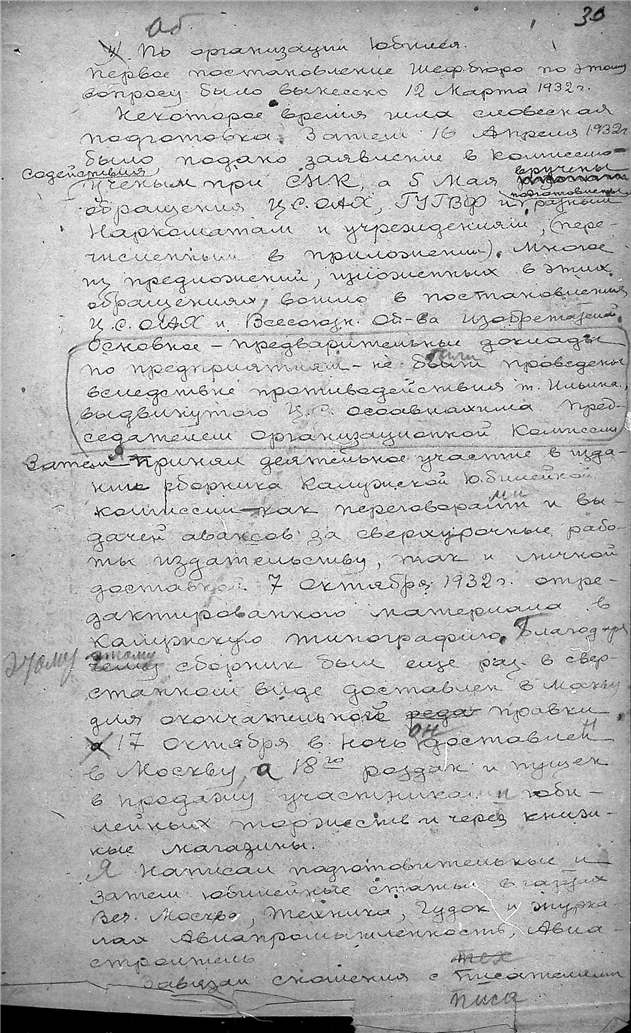 30
Об
По организации Юбилея.
Первое постановление Шефбюро по этому
вопросу было вынесено 12 Марта 1932 г.
Некоторое время шла словесная
подготовка. Затем 16 Апреля 1932 г.
было подано заявление в Комиссию
содействия вручены
ученым при СНК, а 5 Мая
подготовлены
обращения Ц.С.ОАХ, ГУГВФ и разным
Наркоматам и учреждениям, (пере-
численным в приложении). Многое
из предложений, изложенных в этих
обращениях, вошло в постановления
Ц.С.ОАХ и Всесоюзн. Об-ва Изобретателей.
Основное - предварительные доклады
по предприятиям - не были проведены
вследствие противодействия т. Ильина,
выдвинутого Ц.С. Осоавиахима Пред-
седателем Организационной Комиссии
Затем я принял деятельное участие в изда-
нии сборника Калужской Юбилейной
комиссии как переговорами и вы-
дачей авансов за сверхурочные рабо-
ты издательству, так и личной
доставкой 7 Октября 1932 г. отре-
дактированного материала в
Калужскую типографию. Благодаря
этому этому
чему сборник был еще раз в свер-
станном виде доставлен в Москву
для окончательной реда правки
а 17 Октября в ночь он доставлен
в Москву, а 18го роздан и пущен
в продажу участникам юби-
лейных торжеств и через книж-
ные магазины.
Я написал подготовительные и
затем юбилейные статьи в газетах
Веч. Москва, Техника, Гудок и журна-
лах Авиапромышленность, Авиа-
строитель
тех
Завязал сношения с писателями
писа